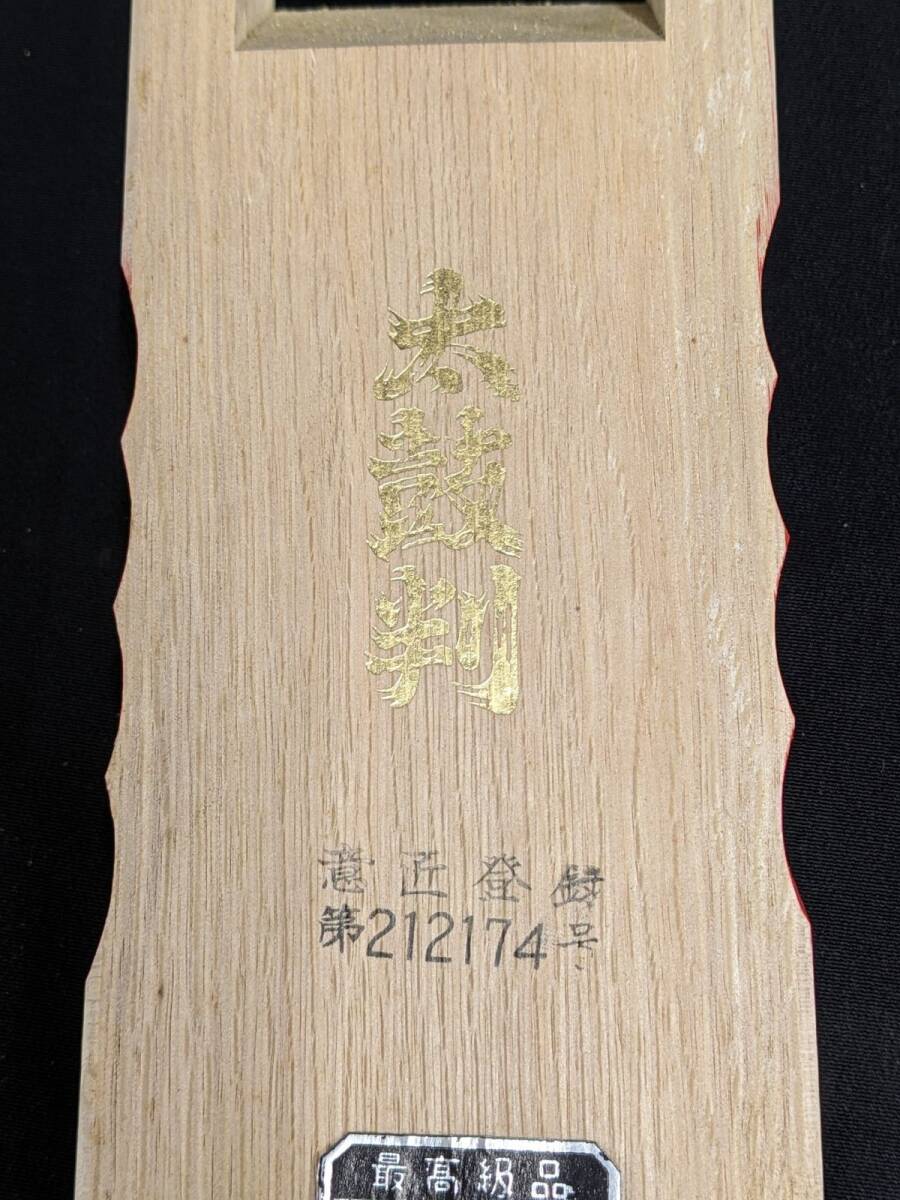 太鼓判
意匠登録
第212174号
最高級品